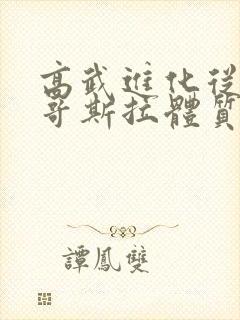 高武進化從
哥斯拉體質
譚鳳雙